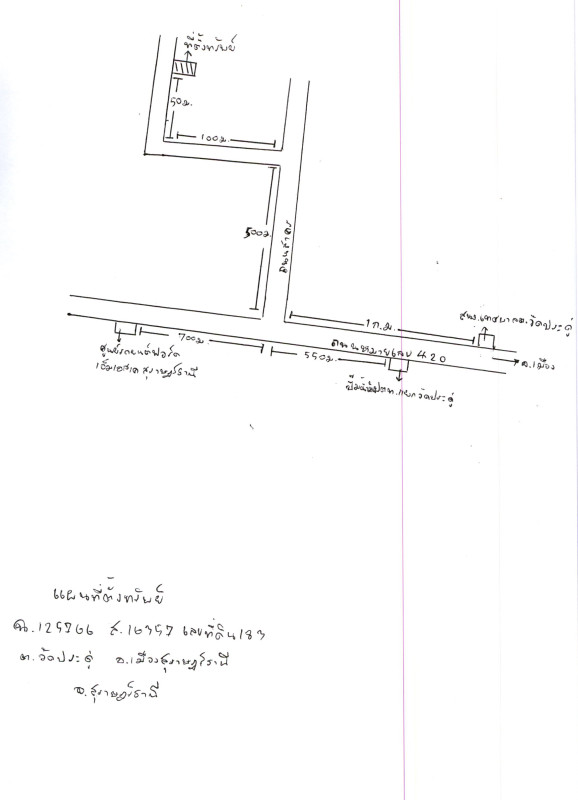 ที่ตั้งทรัพย์
50ม.
100ม.
500ม.
ถนนลำลอง
1 ก.ม.
สนง.เทศบาลต.วัดประดู่
700ม
ถนนหมายเลข 420
550ม
อ.เมือง
ศูนย์รถยนต์ฟอร์ด
เอ็มเอสเค สุราษฎร์ธานี
ปั๊มน้ำมันปตท.แยกวัดประดู่
แผนที่ตั้งทรัพย์
ฉ.125766 ส.16357 เลขที่ดิน 183
ต.วัดประดู่ อ.เมืองสุราษฎร์ธานี
จ.สุราษฎร์ธานี